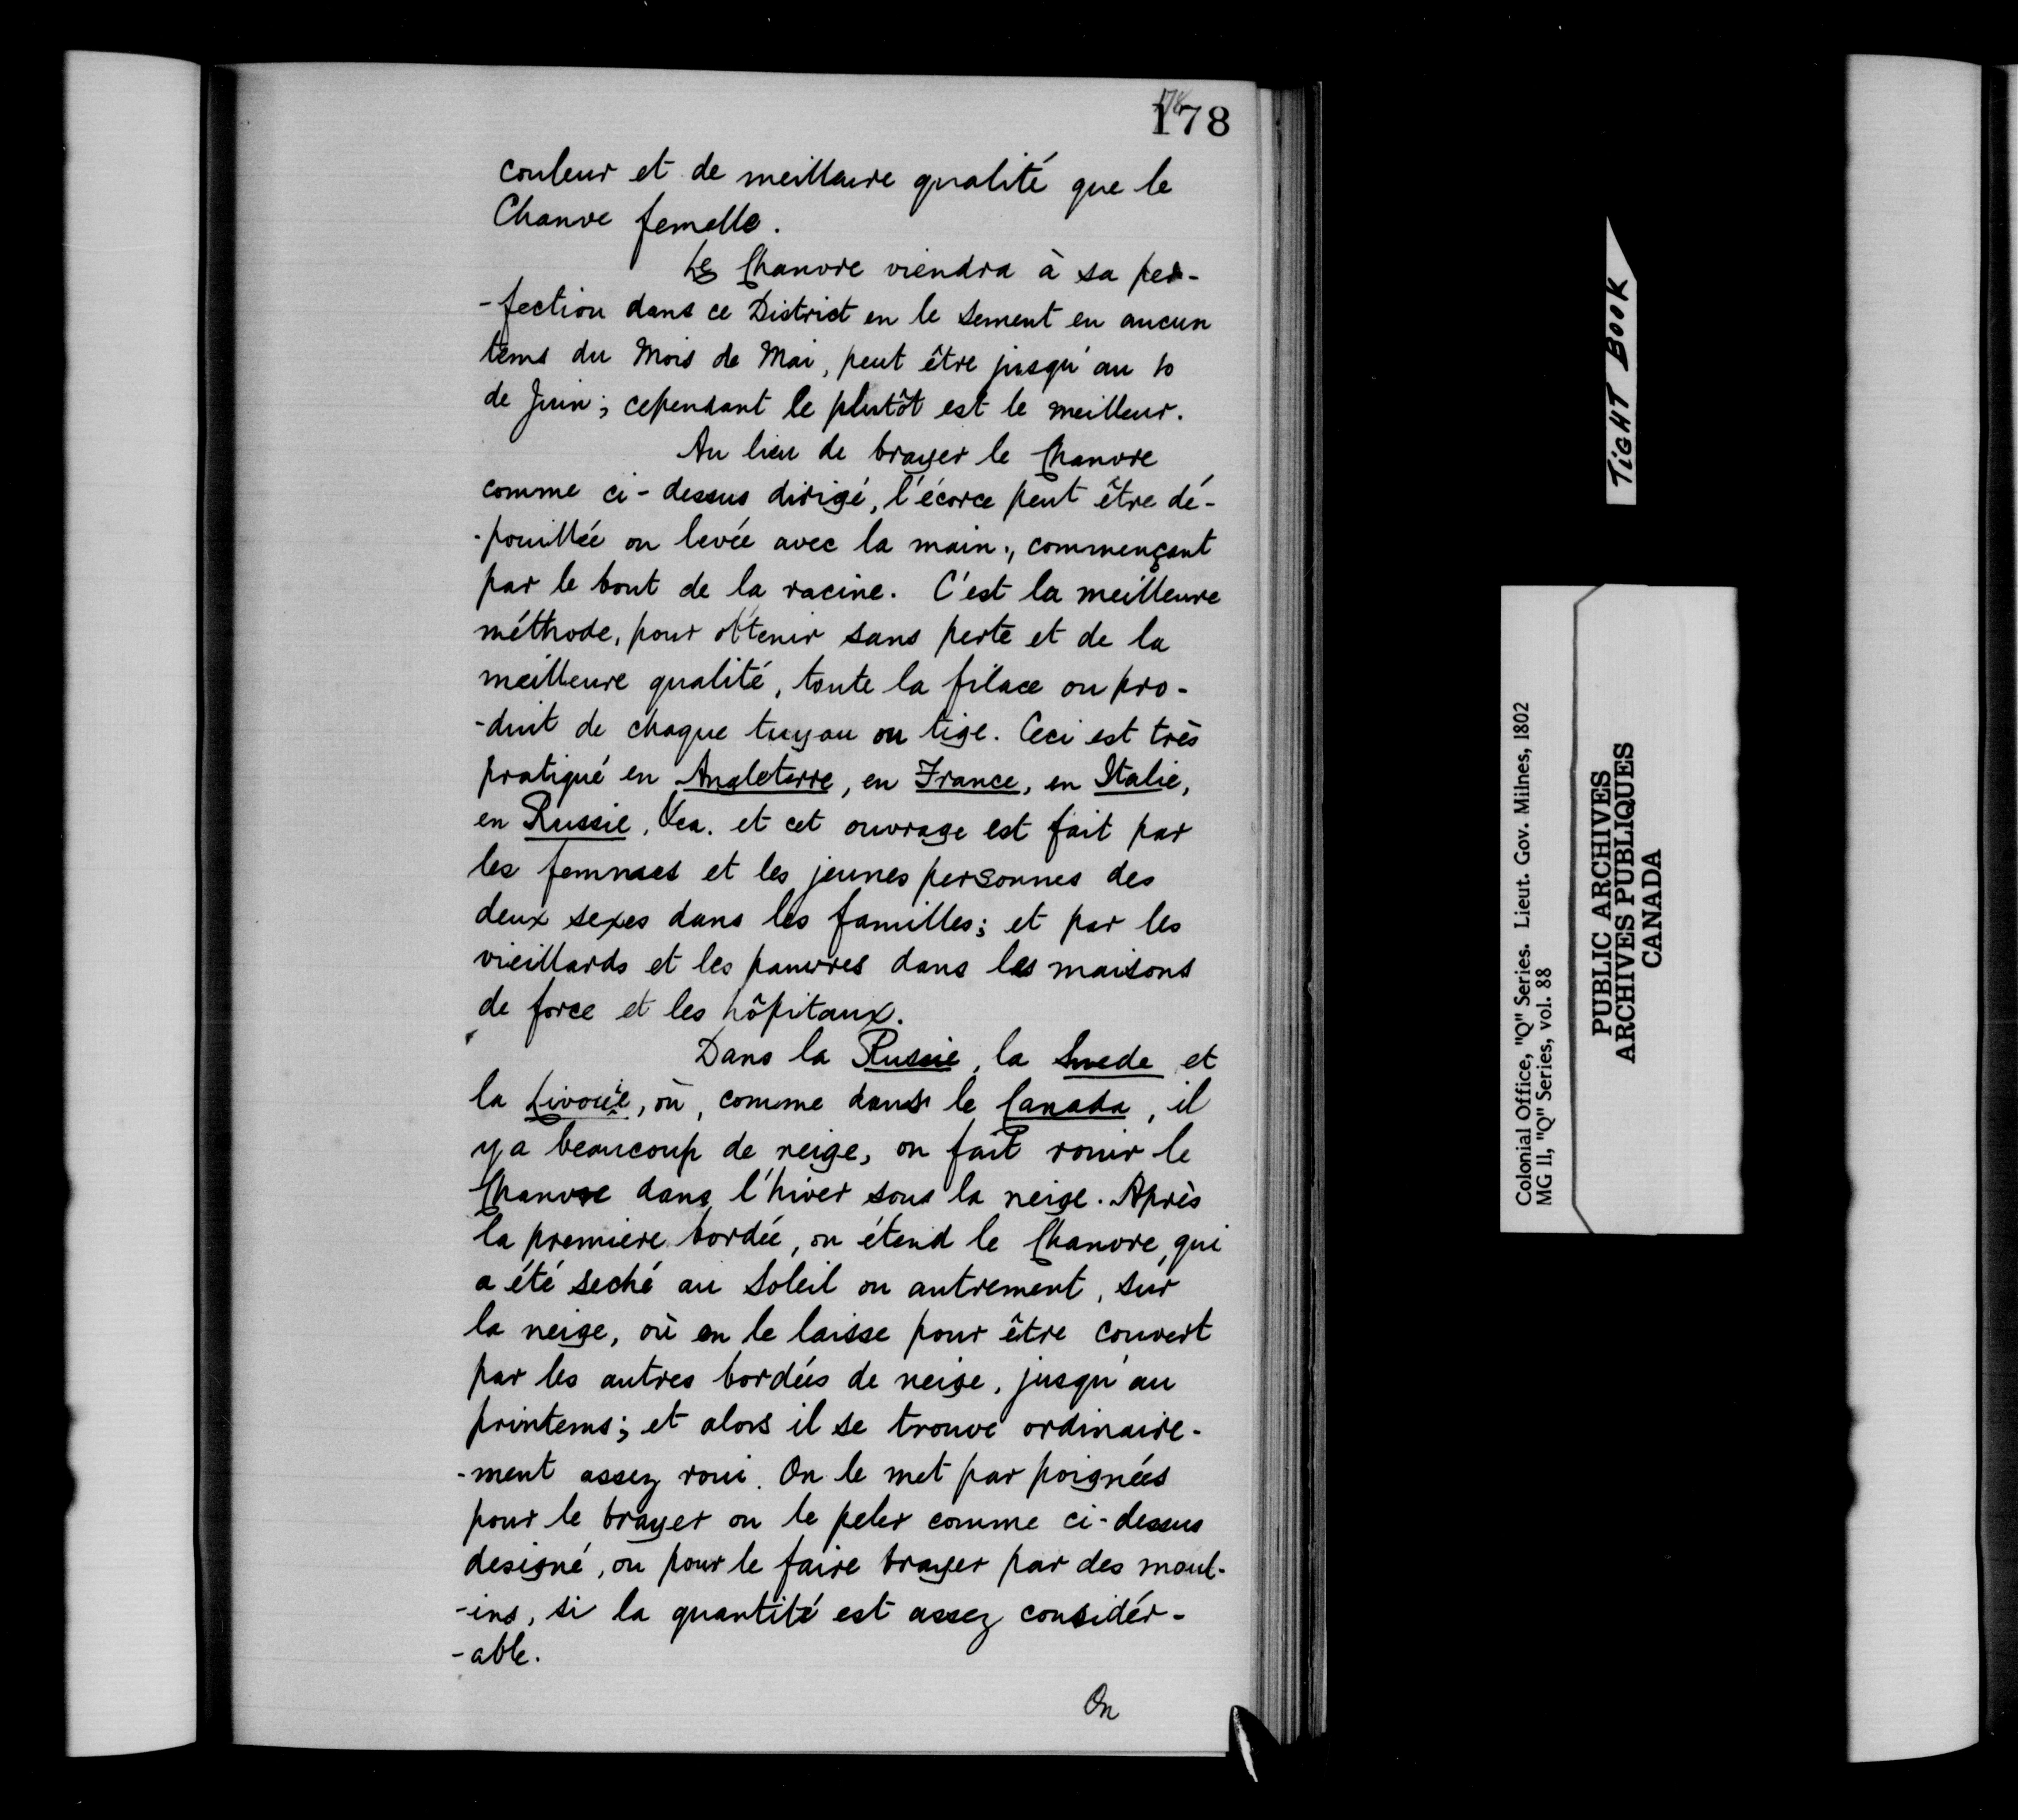 178
178
couleur et de meilleure qualité que le
Chanve femelle.
Le Chanvre viendra à sa per-
-fection dans ce District en le sement en aucun
tems du Mois de Mai, peut être jusqu'au 10
de Juin; cependant le plutôt est le meilleur.
Au lieu de brayer le Chanvre
comme ci-dessus dirigé, l'écorce peut être dé-
-pouillée ou levée avec la main, commençant
par le bout de la racine. C'est la meilleure
méthode, pour obtenir sans perte et de la
meilleure qualité, toute la filace ou pro-
-duit de chaque tuyau ou tige. Ceci est très
pratiqué en Angleterre, en France, en Italie,
en Russie, &ca. et cet ouvrage est fait par
les femmes et les jeunes personnes des
deux sexes dans les familles; et par les
vieillards et les pauvres dans les maisons
de force et les hôpitaux.
Dans la Russie, la Swede et
la Livonie, où, comme dans le Canada, il
y a beaucoup de neige, on fait rouir le
Chanvre dans l'hiver sous la neige. Après
la premiere bordée, on étend le Chanvre, qui
a été seché au Soleil ou autrement, sur
la neige, où on le laisse pour être couvert
par les autres bordées de neige, jusqu'au
printems; et alors il se trouve ordinaire-
-ment assez roui. On le met par poignées
pour le brayer ou le peler comme ci-dessus
designé, ou pour le faire brayer par des moul-
-ins, si la quantité est assez considér-
-able.
On
TIGHT BOOK
Colonial Office, "Q" Series. Lieut. Gov. Milnes, 1802
MG 11, "Q" Series, vol. 88
PUBLIC ARCHIVES
ARCHIVES PUBLIQUES
CANADA